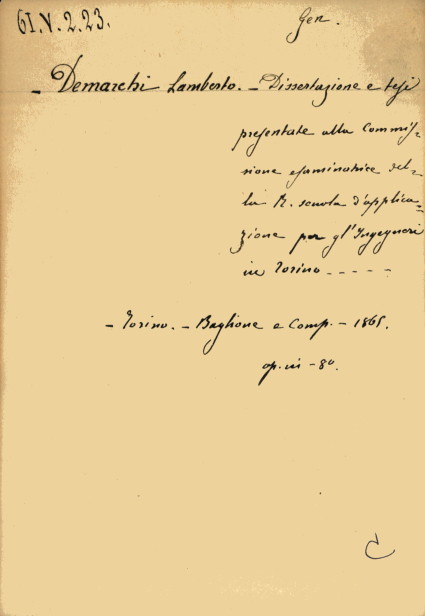 61.V.2.23.
Gen.
- Demarchi Lamberto. - Dissertazione e tesi
presentate alla Commis-
sione esaminatrice del-
la R. scuola d'applica-
zione per gl'Ingegneri
in Torino - - - - -
- Torino. - Baglione e Comp. - 1865.
op. in - 8º.
C